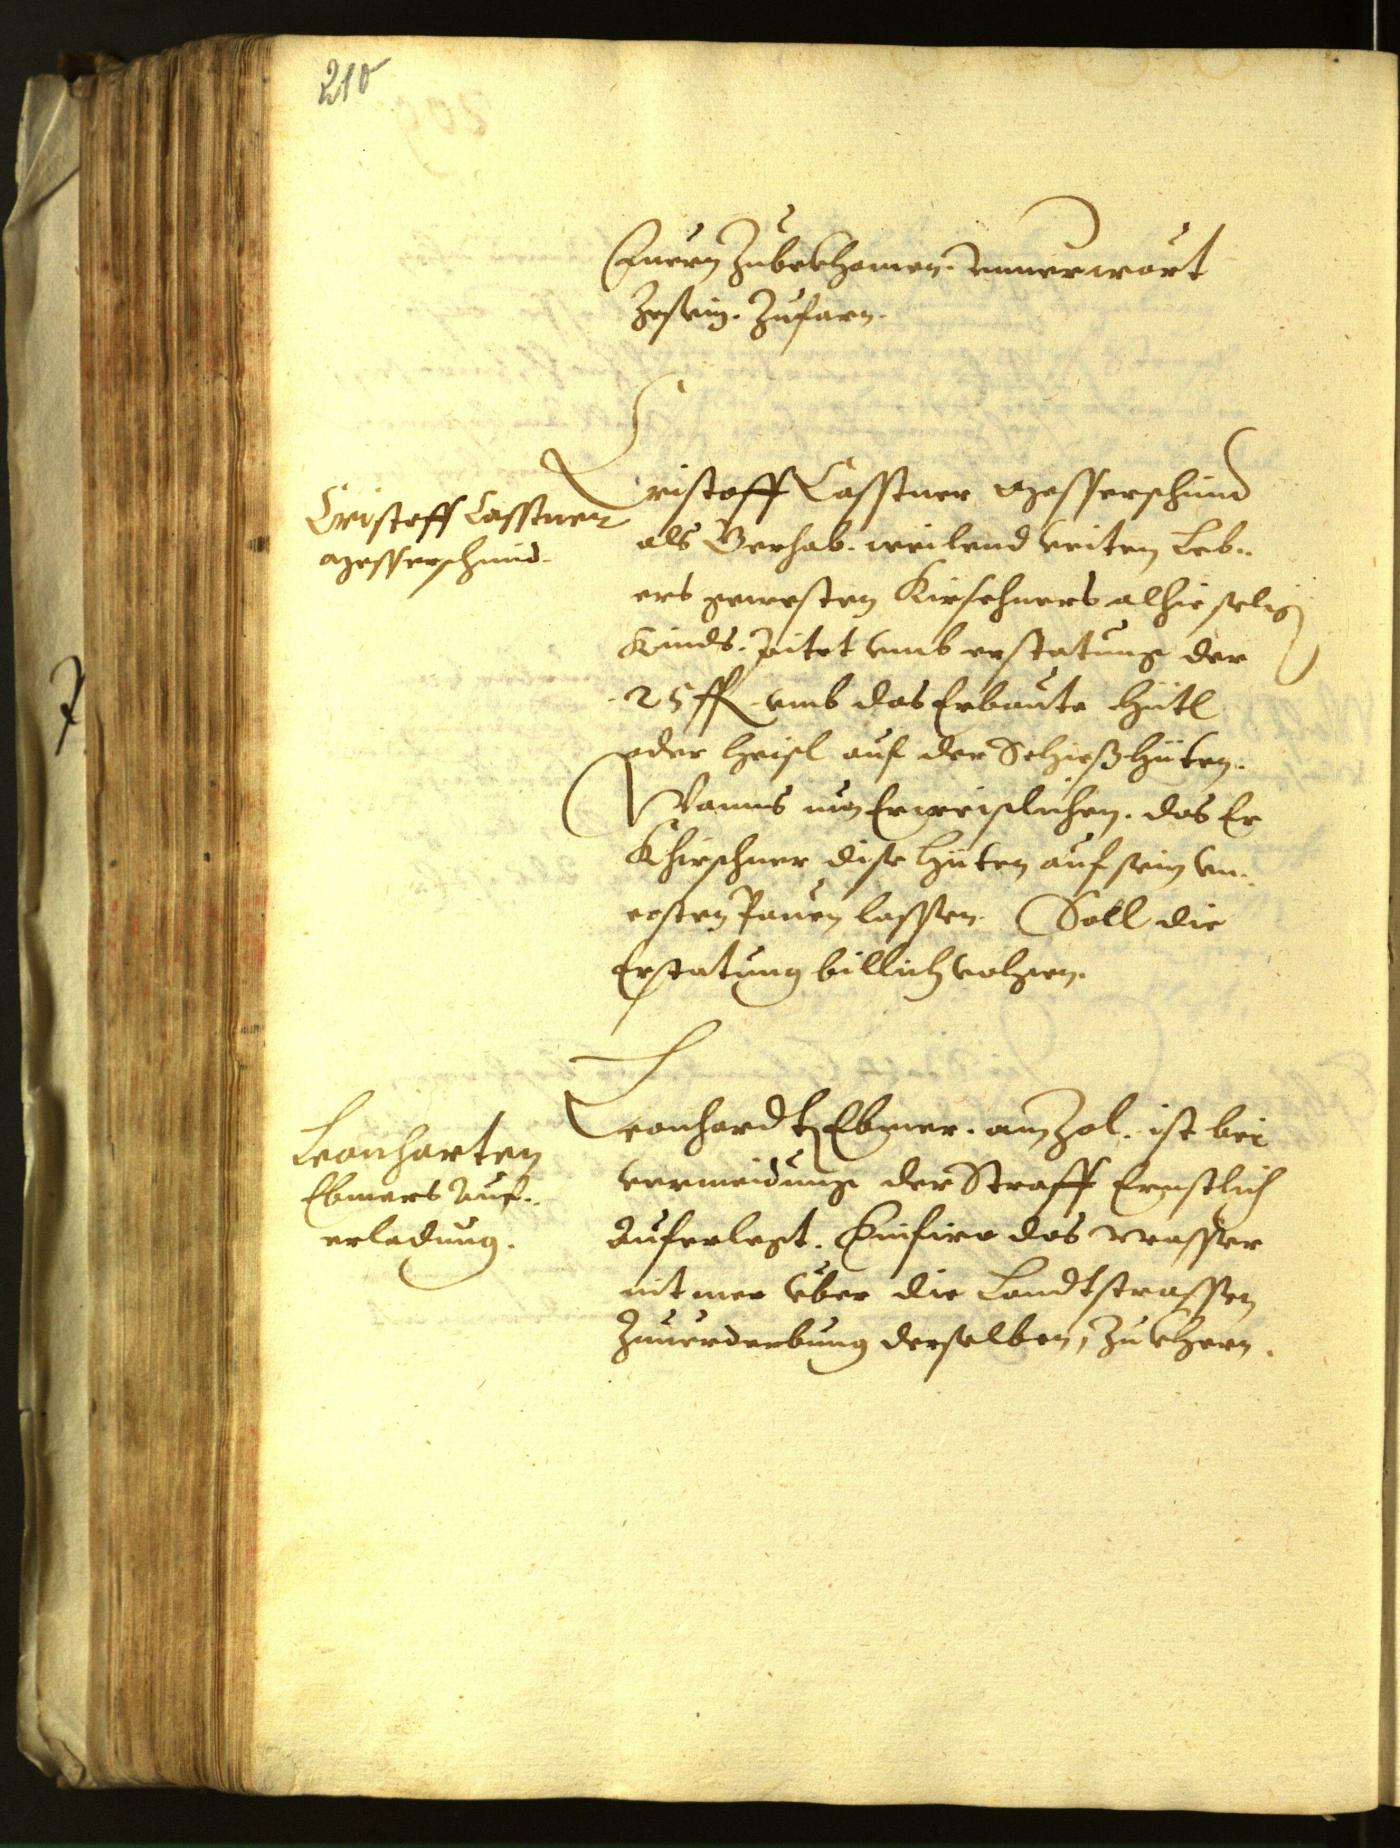 210
Zubekhomen. vnuerwart
Zesein. Zufarn.
Cristoff Casstner
Messerschmid.
Cristoff Casstner Messerschmid
als Gerhab. weilend Veiten Leb-
ers gewesten Kürschners alhie selig
Kinds. Pitet vmb erstatung der
25 fl. vmb das Erbaute Hütl
oder Heisl auf der Schießhüten.
Wanns nun Erweislichen. das Er
Khirschner dise Hüten auf sein vn-
costen Pauen lassen. Soll die
Erstatung billich volgen.
Leonharten
Ebmers Auf-
erladung.
Leonhardt Ebmer. am Zol. ist bei
vermeidung der Straff Ernstlich
Auferlegt. Hinfiro das Wasser
nit mer Über die Landtstrassen
Zuuerderbung derselben, Zukhern.